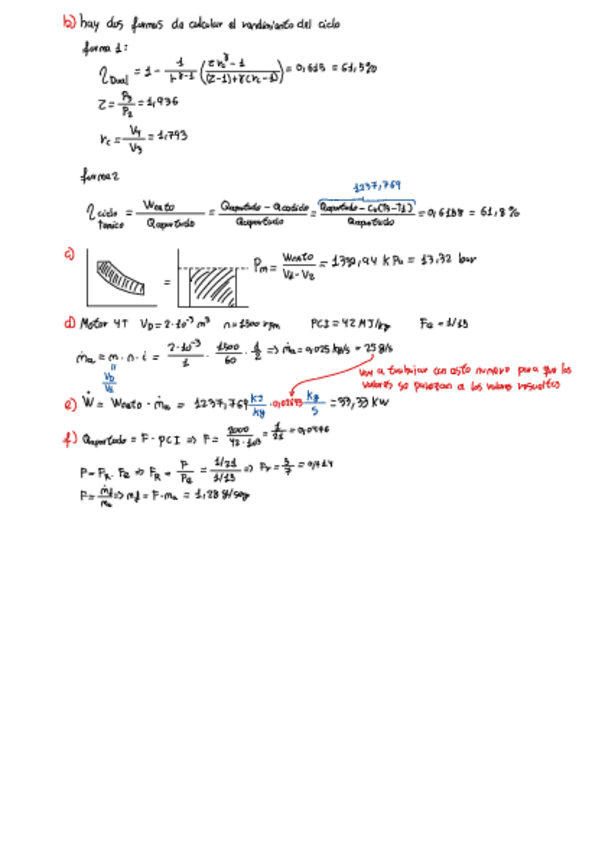 b) hay dos formas de calcular el rendimiento del ciclo
forma 1:
η Dual = 1 - 1/r^γ-1 (τ rc^γ - 1 / (τ-1)+γτ(rc-1)) = 0,615 = 61,5%
τ = P3/P2 = 1,936
rc = V4/V3 = 1,743
forma 2
1237,769
η ciclo termico = Wneto / Qaportado = Qaportado - Qcedido / Qaportado = Qaportado - Cv(T5-T1) / Qaportado = 0,6188 = 61,8%
c) = Pm = Wneto / V1-V2 = 1330,94 kPa = 13,32 bar
d) Motor 4T VD = 2·10⁻³ m³ n = 1500 rpm PCI = 42 MJ/kg Fe = 1/15
ṁa = m · n · i = 2·10⁻³/1 · 1500/60 · 1/2 => ṁa = 0,025 kg/s = 25 g/s
voy a trabajar con este numero para que los
valores se parezcan a los valores resueltos
e) Ẇ = Wneto · ṁa = 1237,769 kJ/kg · kg/s = 33,33 kW
f) Qaportado = F · PCI => F = 2000 / 42·10³ = 1/21 = 0,0476
F = FR · Fe => FR = F/Fe = 1/21 / 1/15 => Fr = 5/7 = 0,714
F = ṁf/ṁa => mf = F · ma = 1,28 g/seg